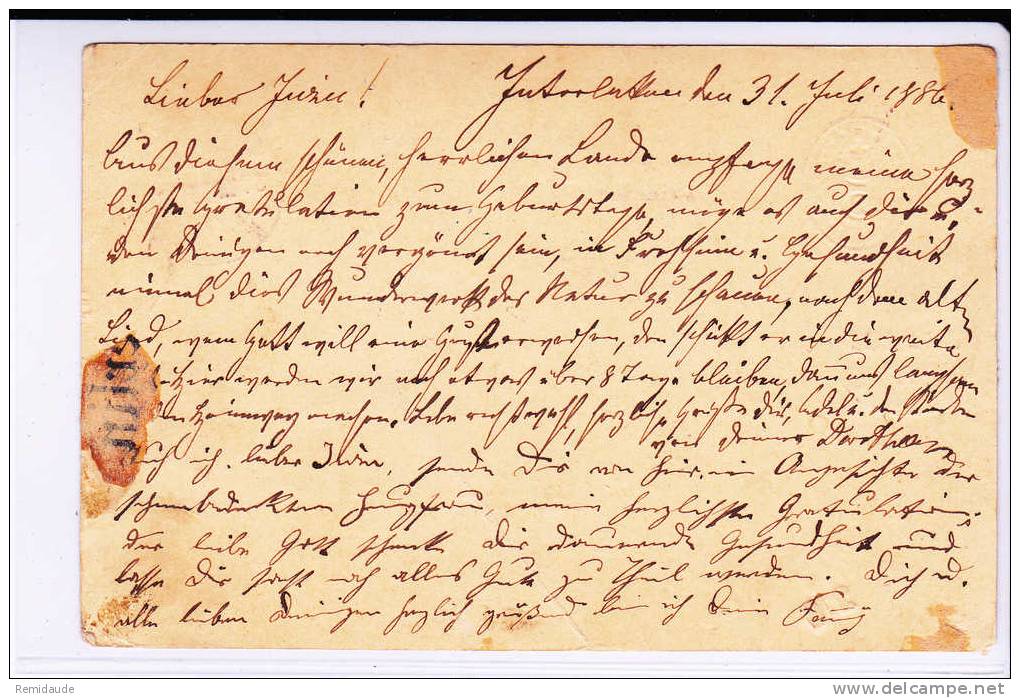 Lieber Irwin! Interlaken den 31. Juli 1886.
Aus diesem schönen, herrlichen Lande empfange meine herz-
lichste Gratulation zum Geburtstage, möge es auch Dir u.
den Deinigen noch vergönnt sein, in Frohsinn u. Gesundheit
einmal dies Wunderwerk der Natur zu schauen, nach dem alten
Lied, wem Gott will eine Gunst erweisen, den schickt er in die weite
hier werden wir noch etwas über 8 Tage bleiben, dann uns langsam
Heimweg machen. Lebe recht wohl, herzliche Grüße Dir, u. den Kindern
von Deiner Dorothea
Auch ich, lieber Irwin, sende Dir von hier, im Angesichte der
schneebedeckten Jungfrau, meine herzlichste Gratulation,
der liebe Gott schenke Dir dauernde Gesundheit und
lasse Dir sonst noch alles Gute zu Theil werden. Dich u.
alle lieben Deinigen herzlich grüßend bin ich Dein
Remidaude
www.delcampe.net